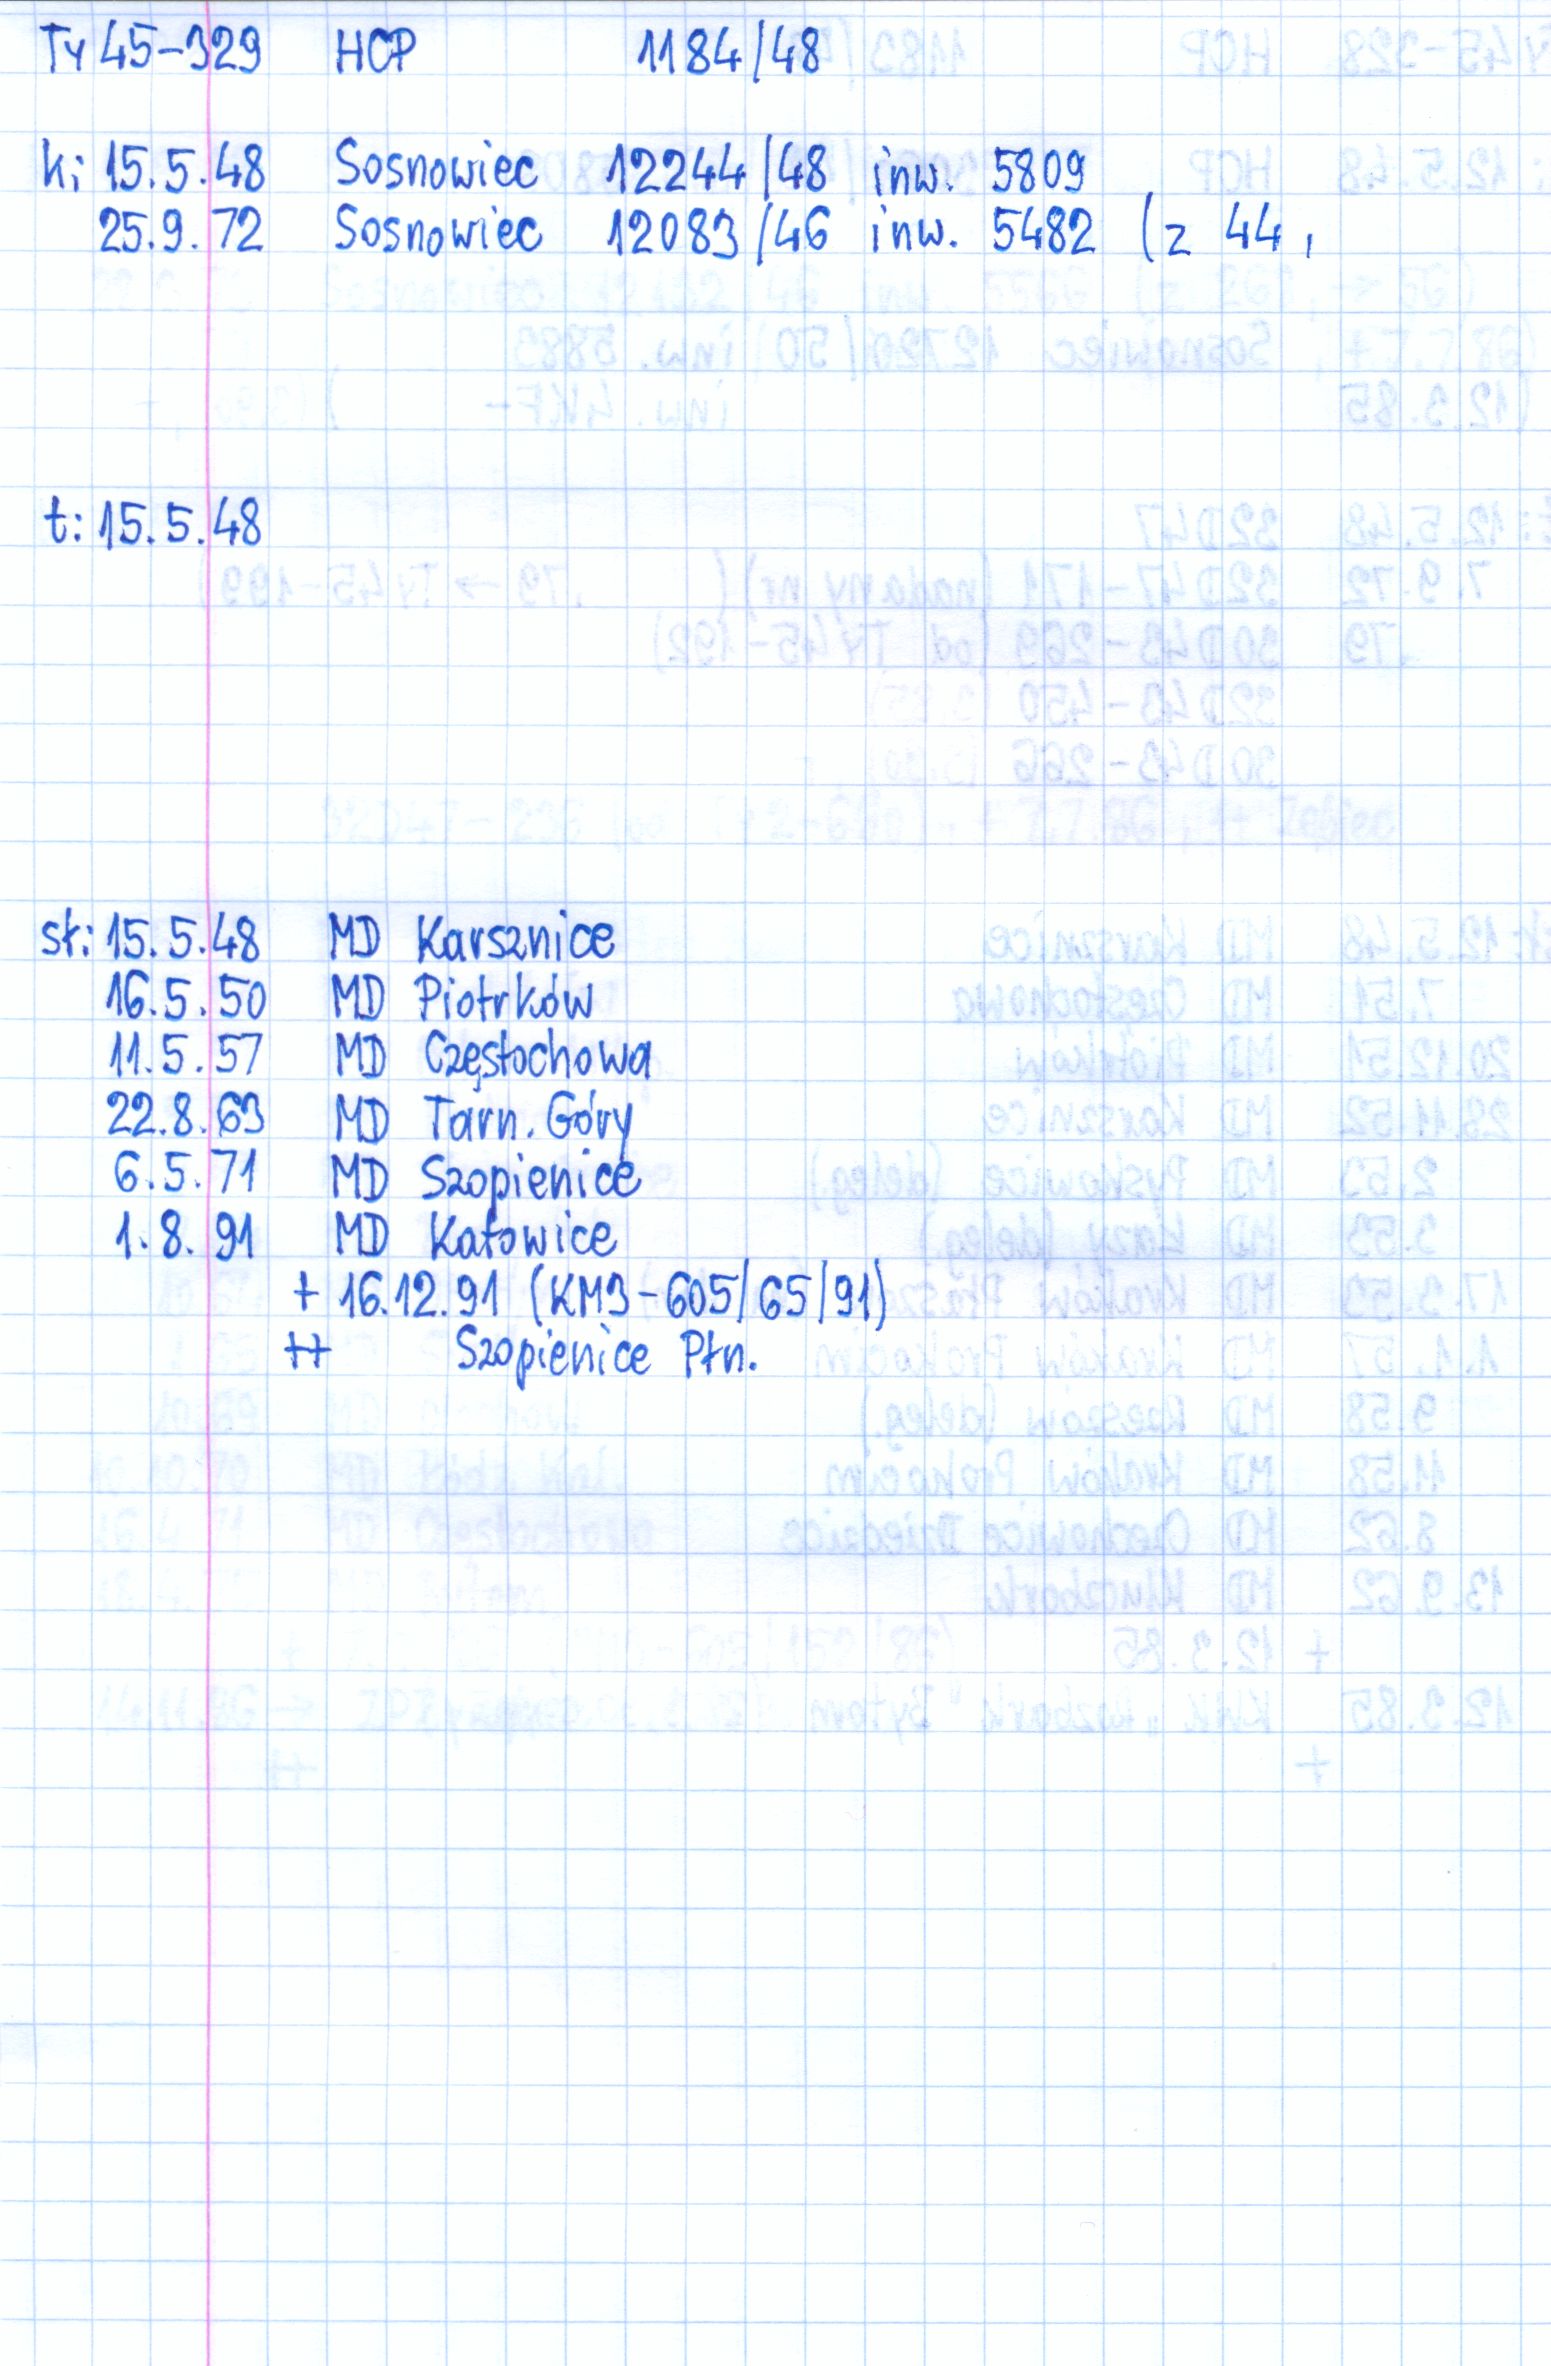 Ty 45-329 HCP 1184/48
k: 15.5.48 Sosnowiec 12244/48 inw. 5809
25.9.72 Sosnowiec 12083/46 inw. 5482 (z 44,
t: 15.5.48
st: 15.5.48 MD Karsznice
16.5.50 MD Piotrków
11.5.57 MD Częstochowa
22.8.63 MD Tarn. Góry
6.5.71 MD Szopienice
1.8.91 MD Katowice
+ 16.12.91 (KM3-605/65/91)
++ Szopienice Płn.